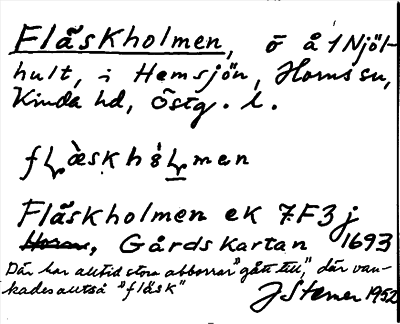 Fläskholmen, ö å 1 Njöl-
hult, i Hemsjön, Horns sn,
Kinda hd, Östg. l.
Fläskholmen ek 7F3j
Gårdskartan 1693
Där har alltid stora abborrar "gått till," där van-
kades alltså "fläsk"
J Stener 1952